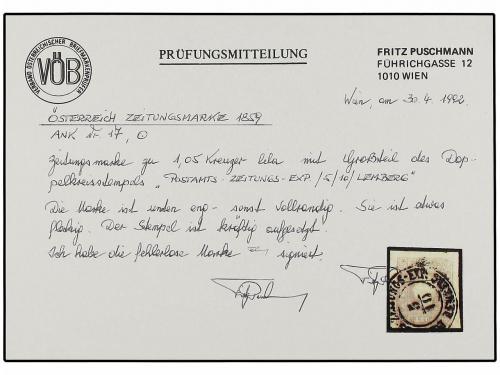 VERBAND ÖSTERREICHISCHER BRIEFMARKENPRÜFER
VÖB
PRÜFUNGSMITTEILUNG
FRITZ PUSCHMANN
FÜHRICHGASSE 12
1010 WIEN
Wien, am 30.4.1992
ÖSTERREICH ZEITUNGSMARKE 1859
ANK Nr. 17,
Zeitungsmarke zu 1,05 Kreuzer lila mit Großteil des Dop-
pelkreisstempels "POSTAMTS-ZEITUNGS-EXP./5/10/LEMBERG"
Die Marke ist unten eng - sonst vollrandig. Sie ist etwas
fleckig. Der Stempel ist kräftig aufgesetzt.
Ich habe die fehlerlose Marke signiert.
ZEITUNGS-EXP.
5
10